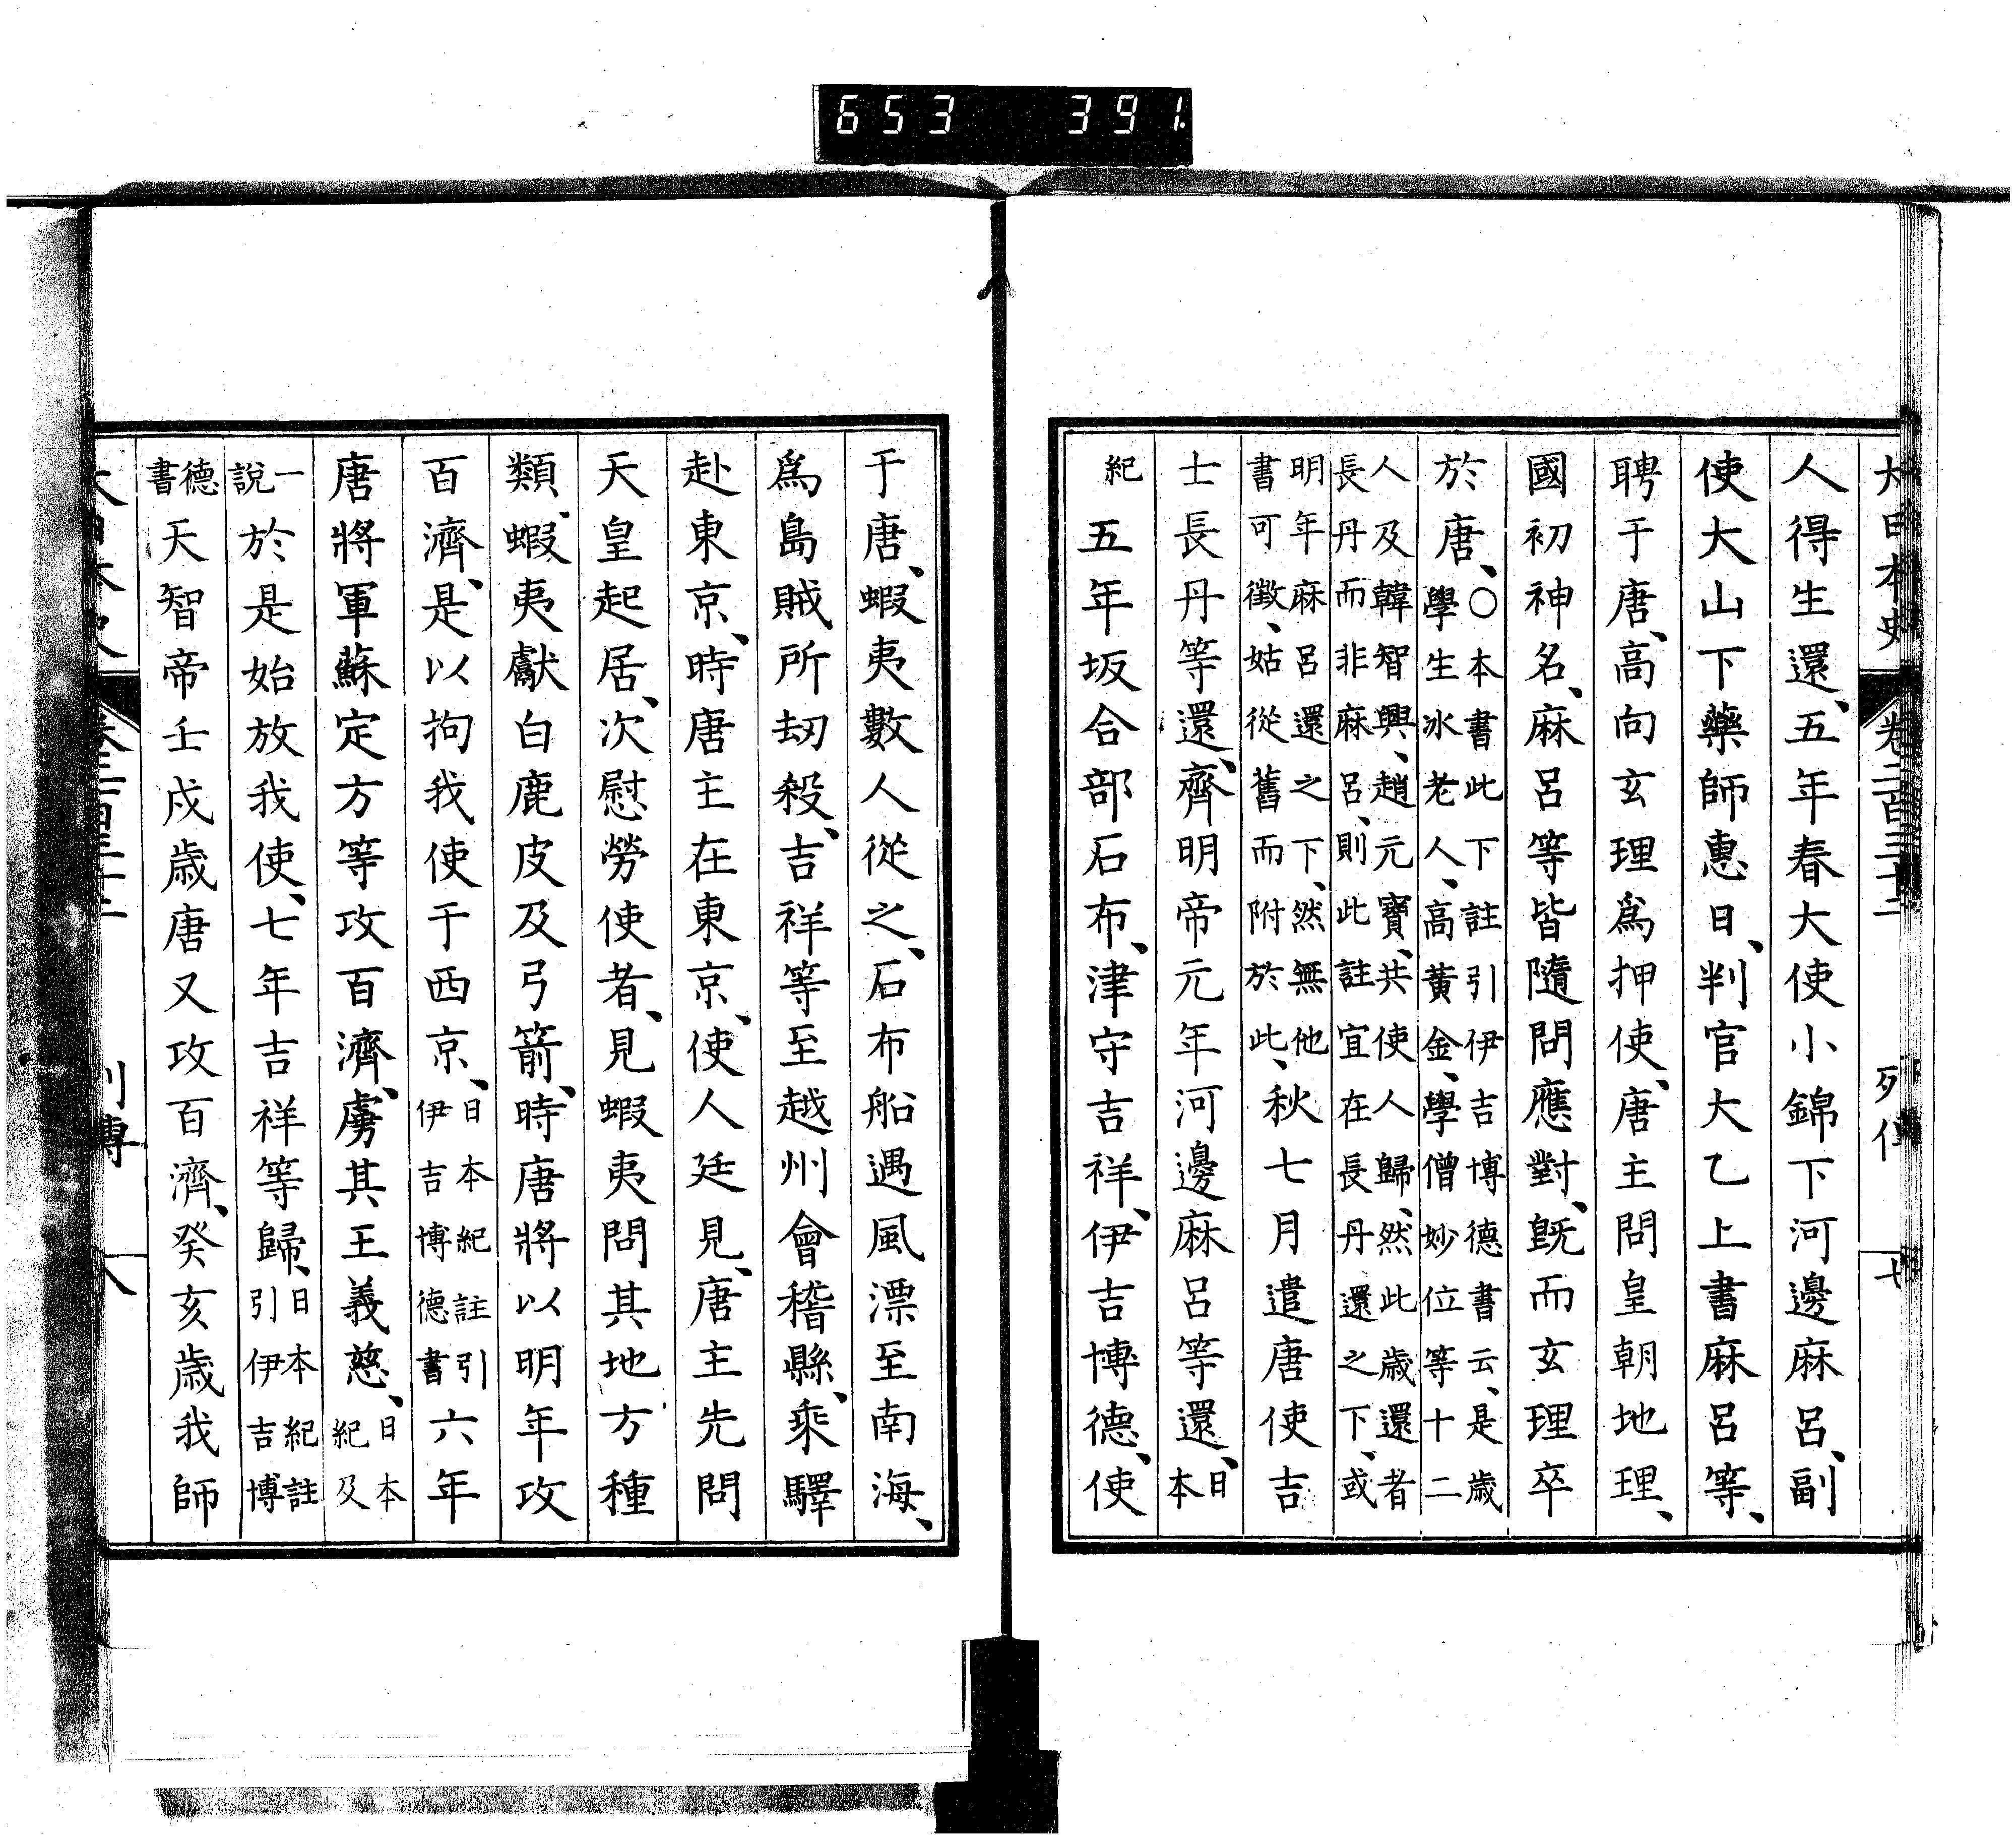 653 391.
大日本史 卷二百四十二 列傳 七
人得生還、五年春大使小錦下河邊麻呂、副
使大山下藥師惠日、判官大乙上書麻呂等、
聘于唐、高向玄理爲押使、唐主問皇朝地理、
國初神名、麻呂等皆隨問應對、旣而玄理卒
於唐、○本書此下註引伊吉博德書云、是歲
學生氷老人、高黃金、學僧妙位等十二
人及韓智興、趙元寶、共使人歸、然此歲還者
長丹而非麻呂、則此註宜在長丹還之下、或
明年麻呂還之下、然無他
書可徵、姑從舊而附於此、秋七月遣唐使吉
士長丹等還、齊明帝元年河邊麻呂等還、日本
紀 五年坂合部石布、津守吉祥、伊吉博德、使
于唐、蝦夷數人從之、石布船遇風漂至南海、
爲島賊所刧殺、吉祥等至越州會稽縣、乘驛
赴東京、時唐主在東京、使人廷見、唐主先問
天皇起居、次慰勞使者、見蝦夷問其地方種
類、蝦夷獻白鹿皮及弓箭、時唐將以明年攻
百濟、是以拘我使于西京、日本紀註引
伊吉博德書 六年
唐將軍蘇定方等攻百濟、虜其王義慈、日本
紀及
一說 於是始放我使、七年吉祥等歸、日本紀註
引伊吉博
德書 天智帝壬戌歲唐又攻百濟、癸亥歲我師
列傳 八